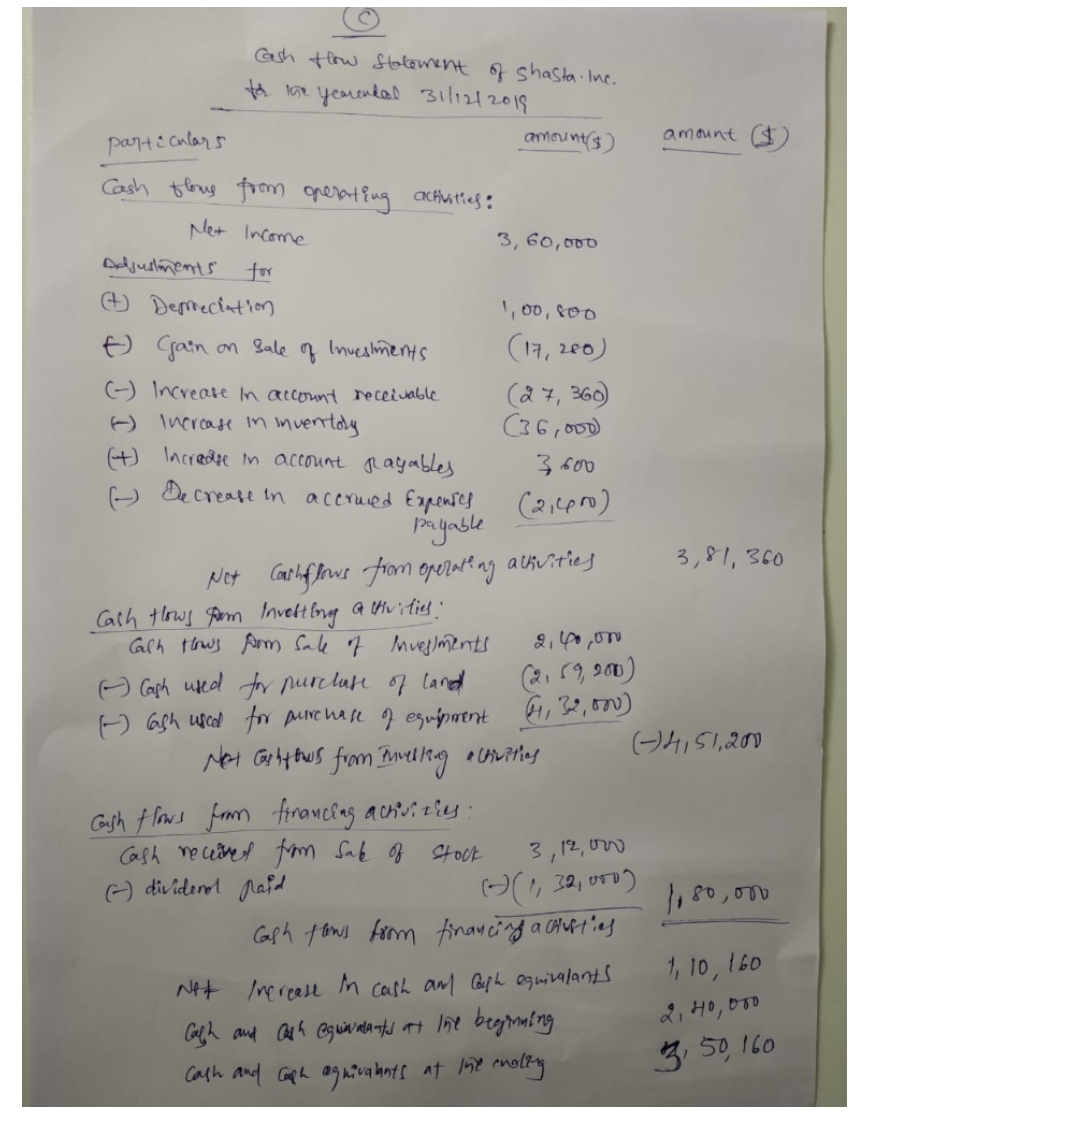 (C)
Cash flow Statement of Shasta. Inc.
for the yearended 31/12/2019
particulars amount($) amount ($)
Cash flows from operating activities:
Net Income 3,60,000
Adjustments for
(+) Depreciation 1,00,800
(-) Gain on Sale of Investments (17,280)
(-) Increase In account receivable (27,360)
(-) Increase In inventory (36,000)
(+) Increase in account payables 3,600
(-) Decrease In accrued Expenses (2,400)
payable
Net Cashflows from operating activities 3,81,360
Cash flows from Investing activities:
Cash flows from Sale of Investments 2,40,000
(-) Cash used for purchase of land (2,59,200)
(-) Cash used for purchase of equipment (4,32,000)
Net Cashflows from Investing activities (-)4,51,200
Cash flows from financing activities:
Cash received from Sale of Stock 3,12,000
(-) dividend paid (-)(1,32,000) 1,80,000
Cash flows from financing activities
Net Increase In cash and Cash equivalants 1,10,160
Cash and Cash equivalants at the beginning 2,40,000
Cash and Cash equivalants at the ending 3,50,160